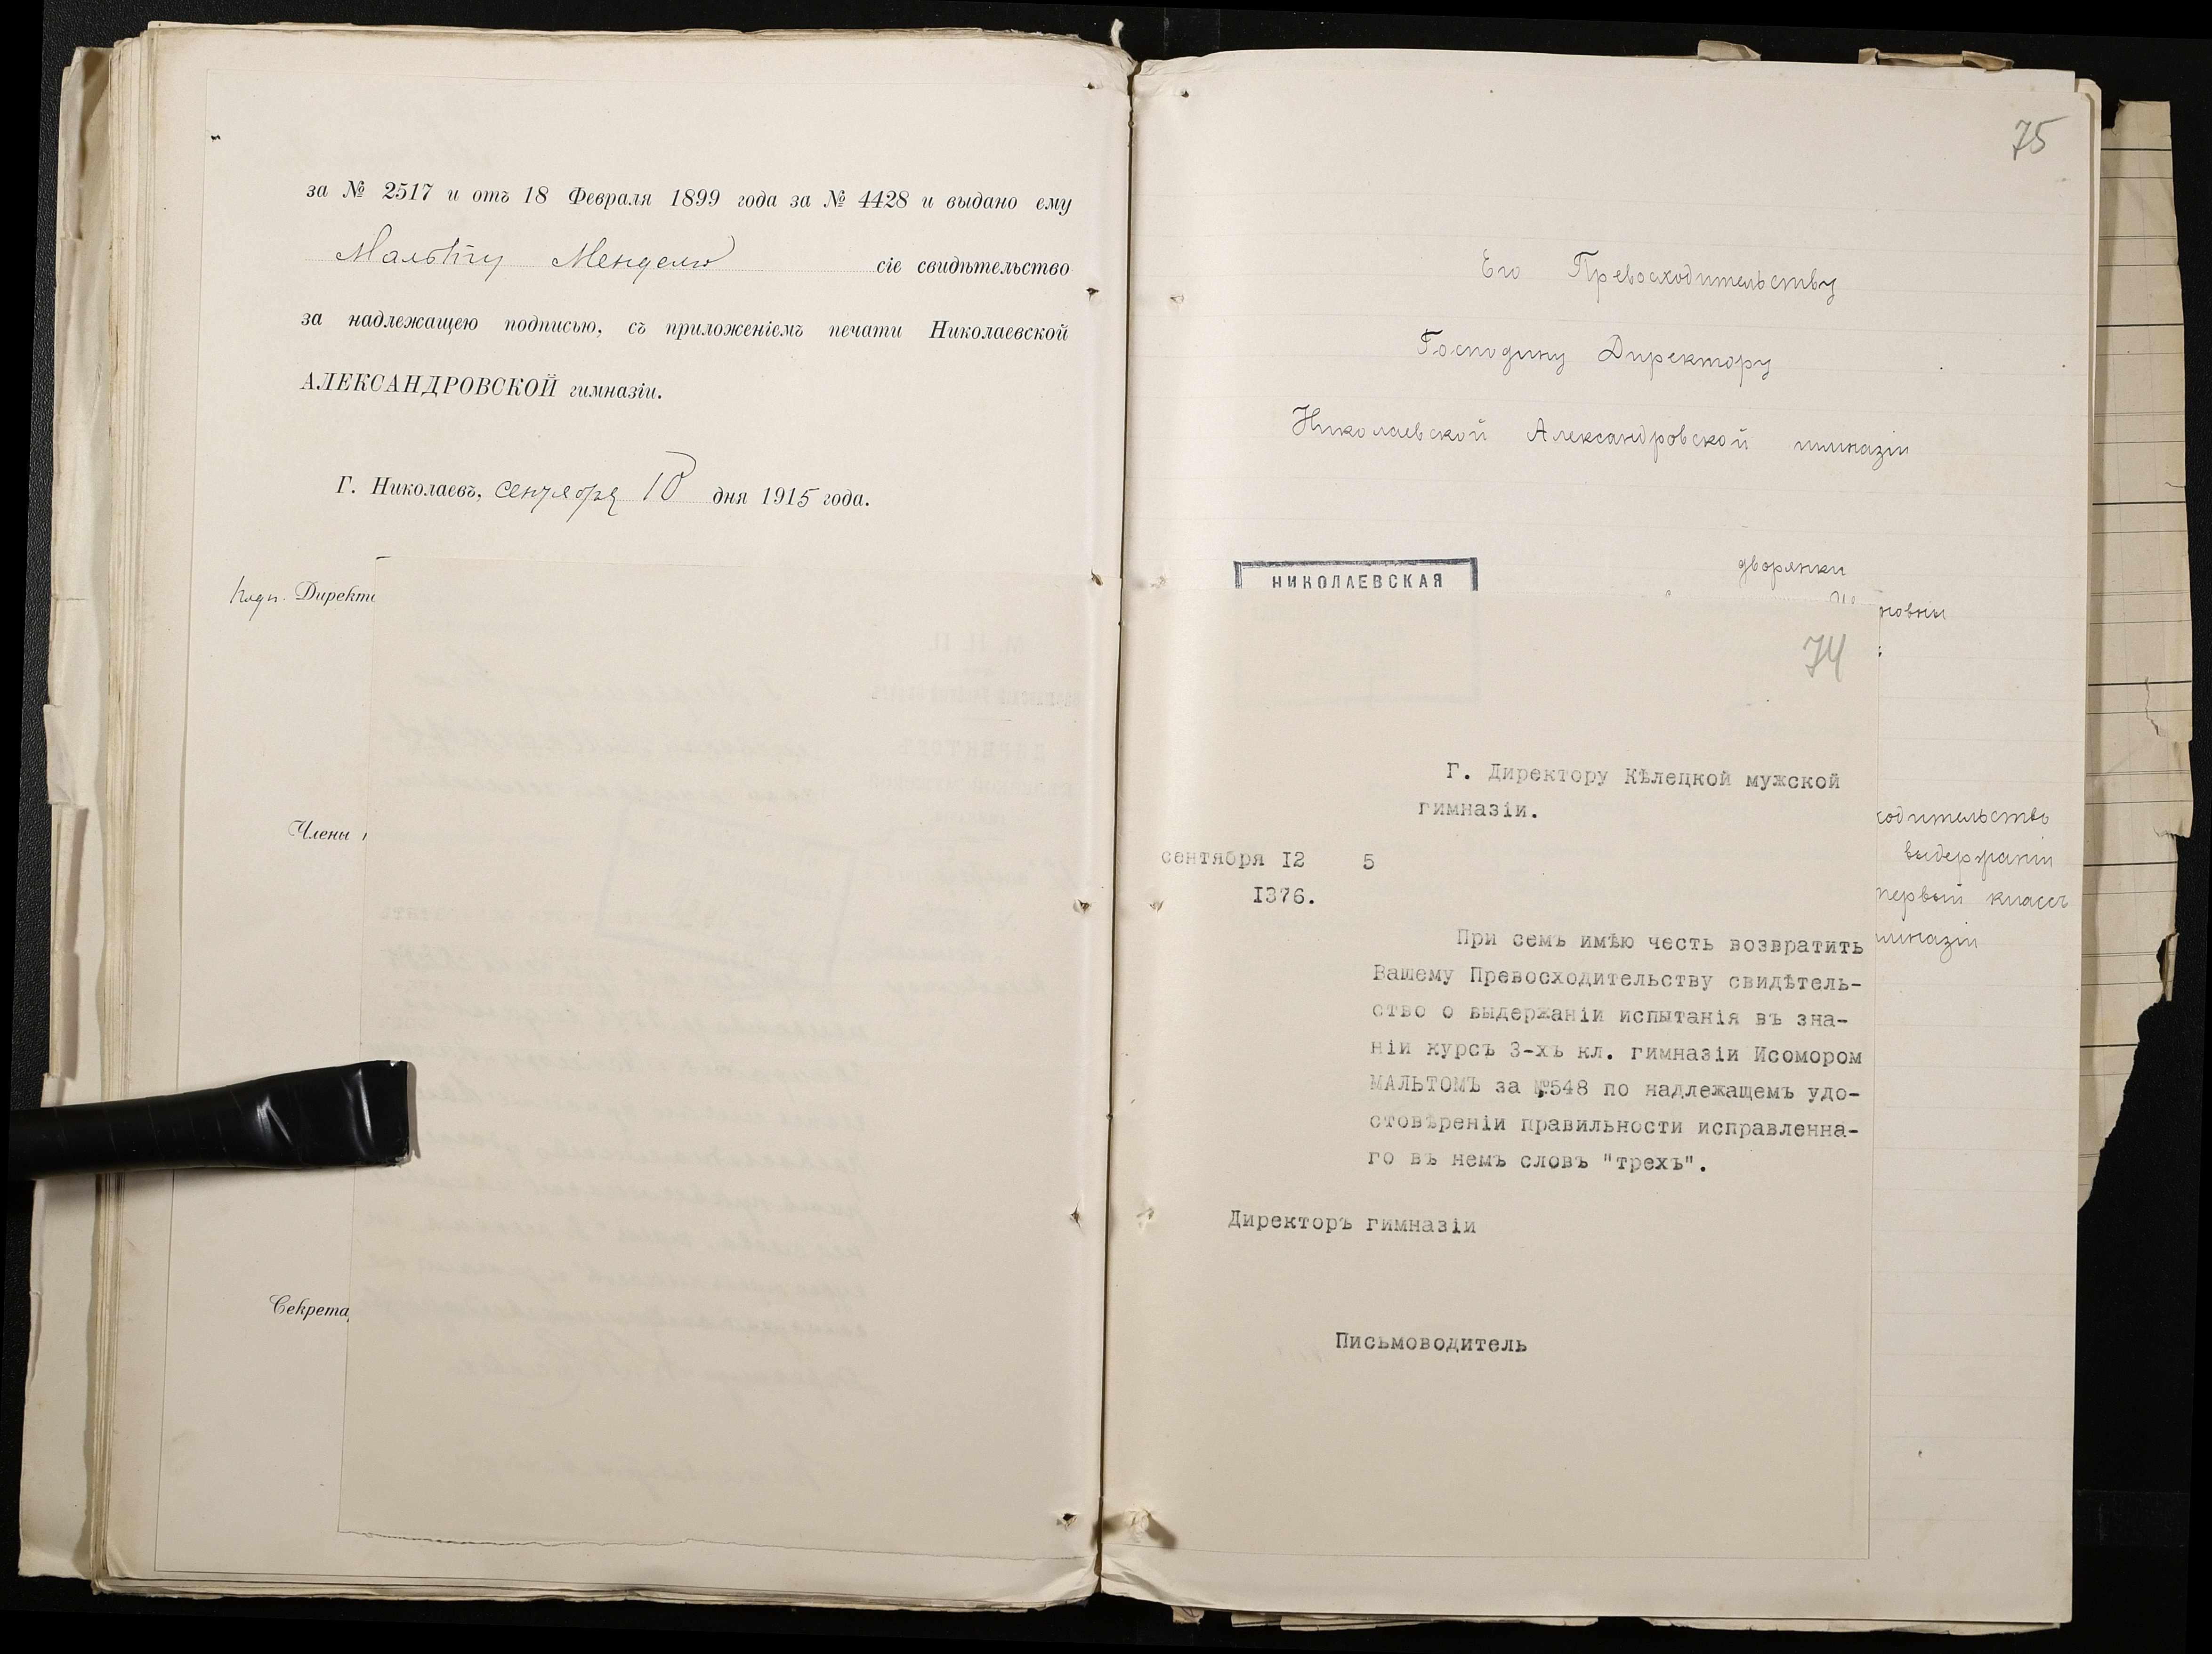 за № 2517 и отъ 18 Февраля 1899 года за № 4428 и выдано ему
Мальту Менделю сіе свидѣтельство
за надлежащею подписью, съ приложеніемъ печати Николаевской
АЛЕКСАНДРОВСКОЙ гимназіи.
Г. Николаевъ, сентября 10 дня 1915 года.
Подп. Директо
Члены
Секрета
75
Его Превосходительству
Господину Директору
Николаевской Александровской гимназіи
дворянки
новны
НИКОЛАЕВСКАЯ
ходительство
выдержаніи
первый классъ
гимназіи
74
Г. Директору Кѣлецкой мужской
гимназіи.
сентября 12 5
1376.
При семъ имѣю честь возвратить
Вашему Превосходительству свидѣтель-
ство о выдержаніи испытанія въ зна-
ніи курсъ 3-хъ кл. гимназіи Исомором
МАЛЬТОМЪ за №548 по надлежащемъ удо-
стовѣреніи правильности исправленна-
го въ немъ словъ "трехъ".
Директоръ гимназіи
Письмоводитель